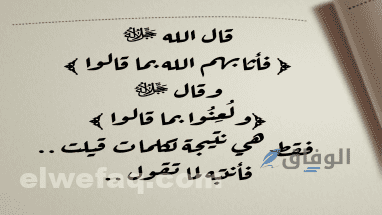 قال الله ﷻ
﴿ فأثابهم الله بما قالوا ﴾
وقال ﷻ
﴿ ولُعِنُوا بما قالوا ﴾
فقط هي نتيجة لكلمات قيلت ..
فأنتبه لما تقول ..
الوفاق
elwefaq.com